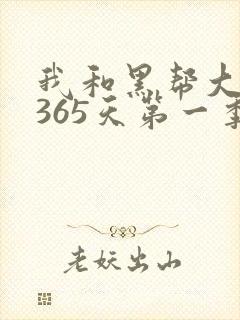 我和黑帮大
365天第一季
老妖出山